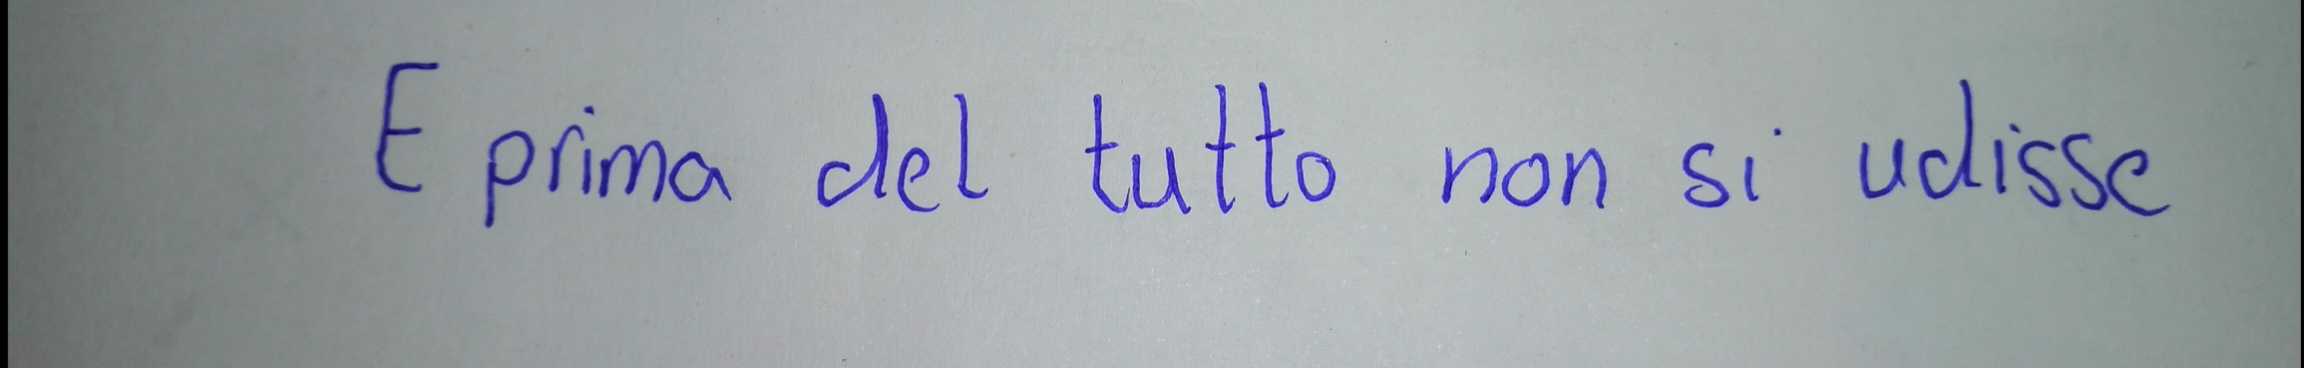 E prima del tutto non si udisse